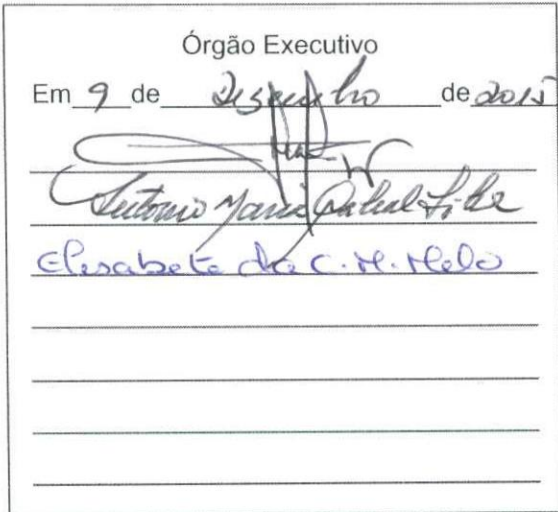 Órgão Executivo
Em 9 de Dezembro de 2015
António Maria Cabral
Elisabete da C. M. Melo